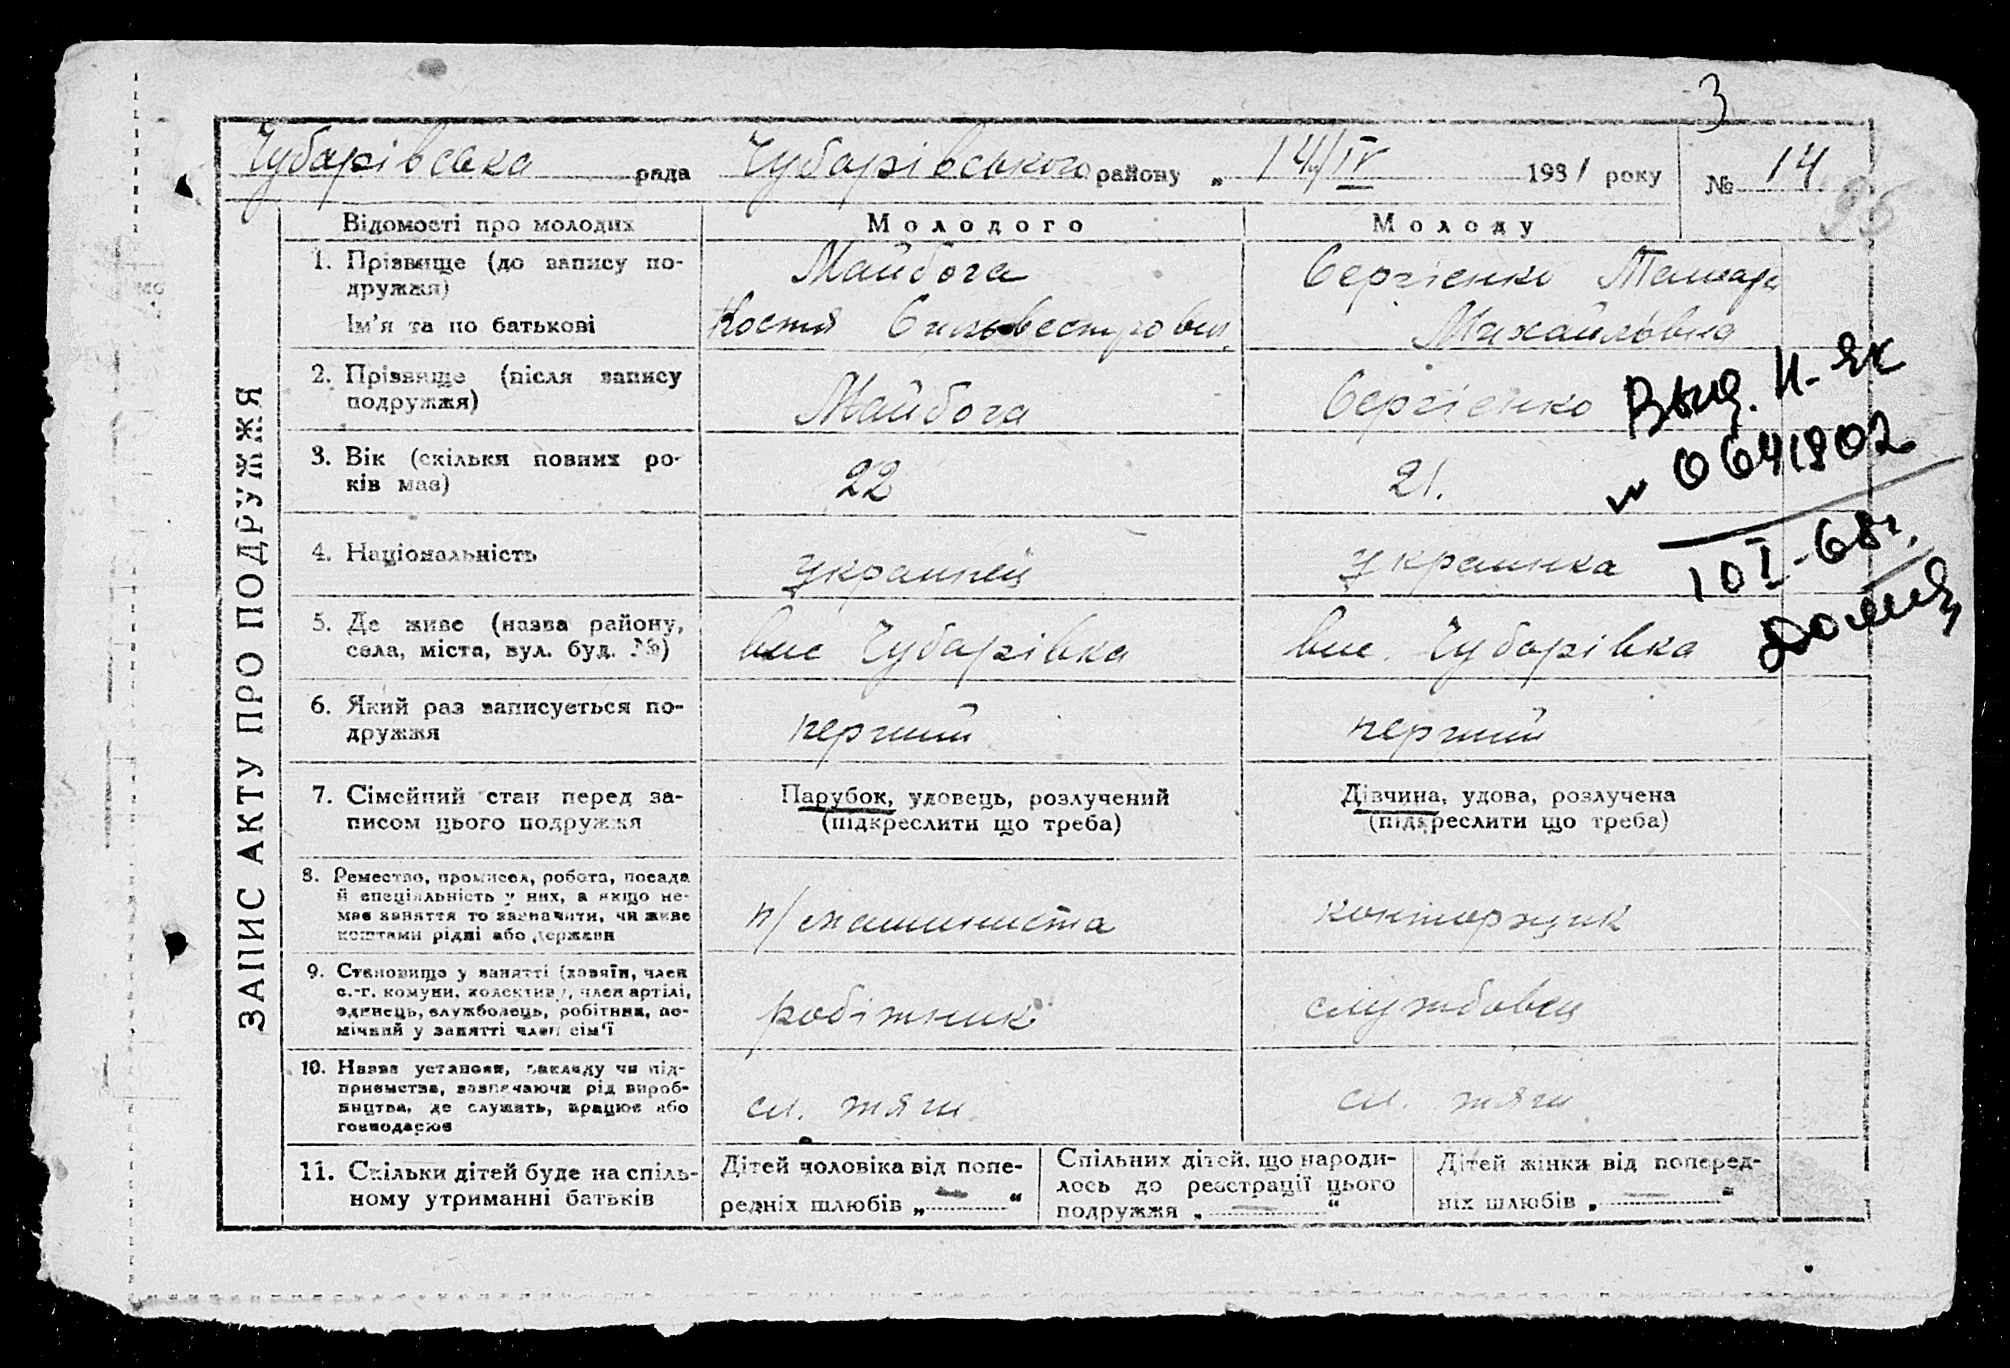 3
Чубарівська рада Чубарівського району „ 14/IV 1931 року № 14
95
ЗАПИС АКТУ ПРО ПОДРУЖЖЯ
Відомості про молодих Молодого Молоду
1. Прізвище (до запису по-
дружжя)
Ім'я та по батькові
Майбога
Костя Сильвестрович
Сергієнко Тамара
Михайлівна
2. Прізвище (після запису
подружжя)
Майбога
Сергієнко
3. Вік (скільки повних ро-
ків має)
22
21.
4. Національність
українец
українка
5. Де живе (назва району,
села, міста, вул. буд. №)
вис Чубарівка
вис. Чубарівка
6. Який раз записується по-
дружжя
перший
перший
7. Сімейний стан перед за-
писом цього подружжя
Парубок, удовець, розлучений
(підкреслити що треба)
Дівчина, удова, розлучена
(підкреслити що треба)
8. Ремество, промисел, робота, посада
й спеціяльність у них, а якщо не-
має заняття то зазначити, чи живе
коштами рідні або держави
п/машиниста
конторщик
9. Становище у занятті (хазяїн, член
с.-г. комуни, колективу, член артілі,
одинець, службовець, робітник, по-
мічний у занятті член сім'ї
робітник
службовец
10. Назва установи, закладу чи під-
приємства, зазначаючи рід вироб-
ництва, де служить, працює або
господарює
сл. тяги
сл. тяги
11. Скільки дітей буде на спіль-
ному утриманні батьків
Дітей чоловіка від попе-
редніх шлюбів „ — “
Спільних дітей, що народи-
лось до реєстрації цього
подружжя „ — “
Дітей жінки від поперед-
ніх шлюбів „ — “
Выд. II-ЯК
№ 0641802
10 I-68 г.